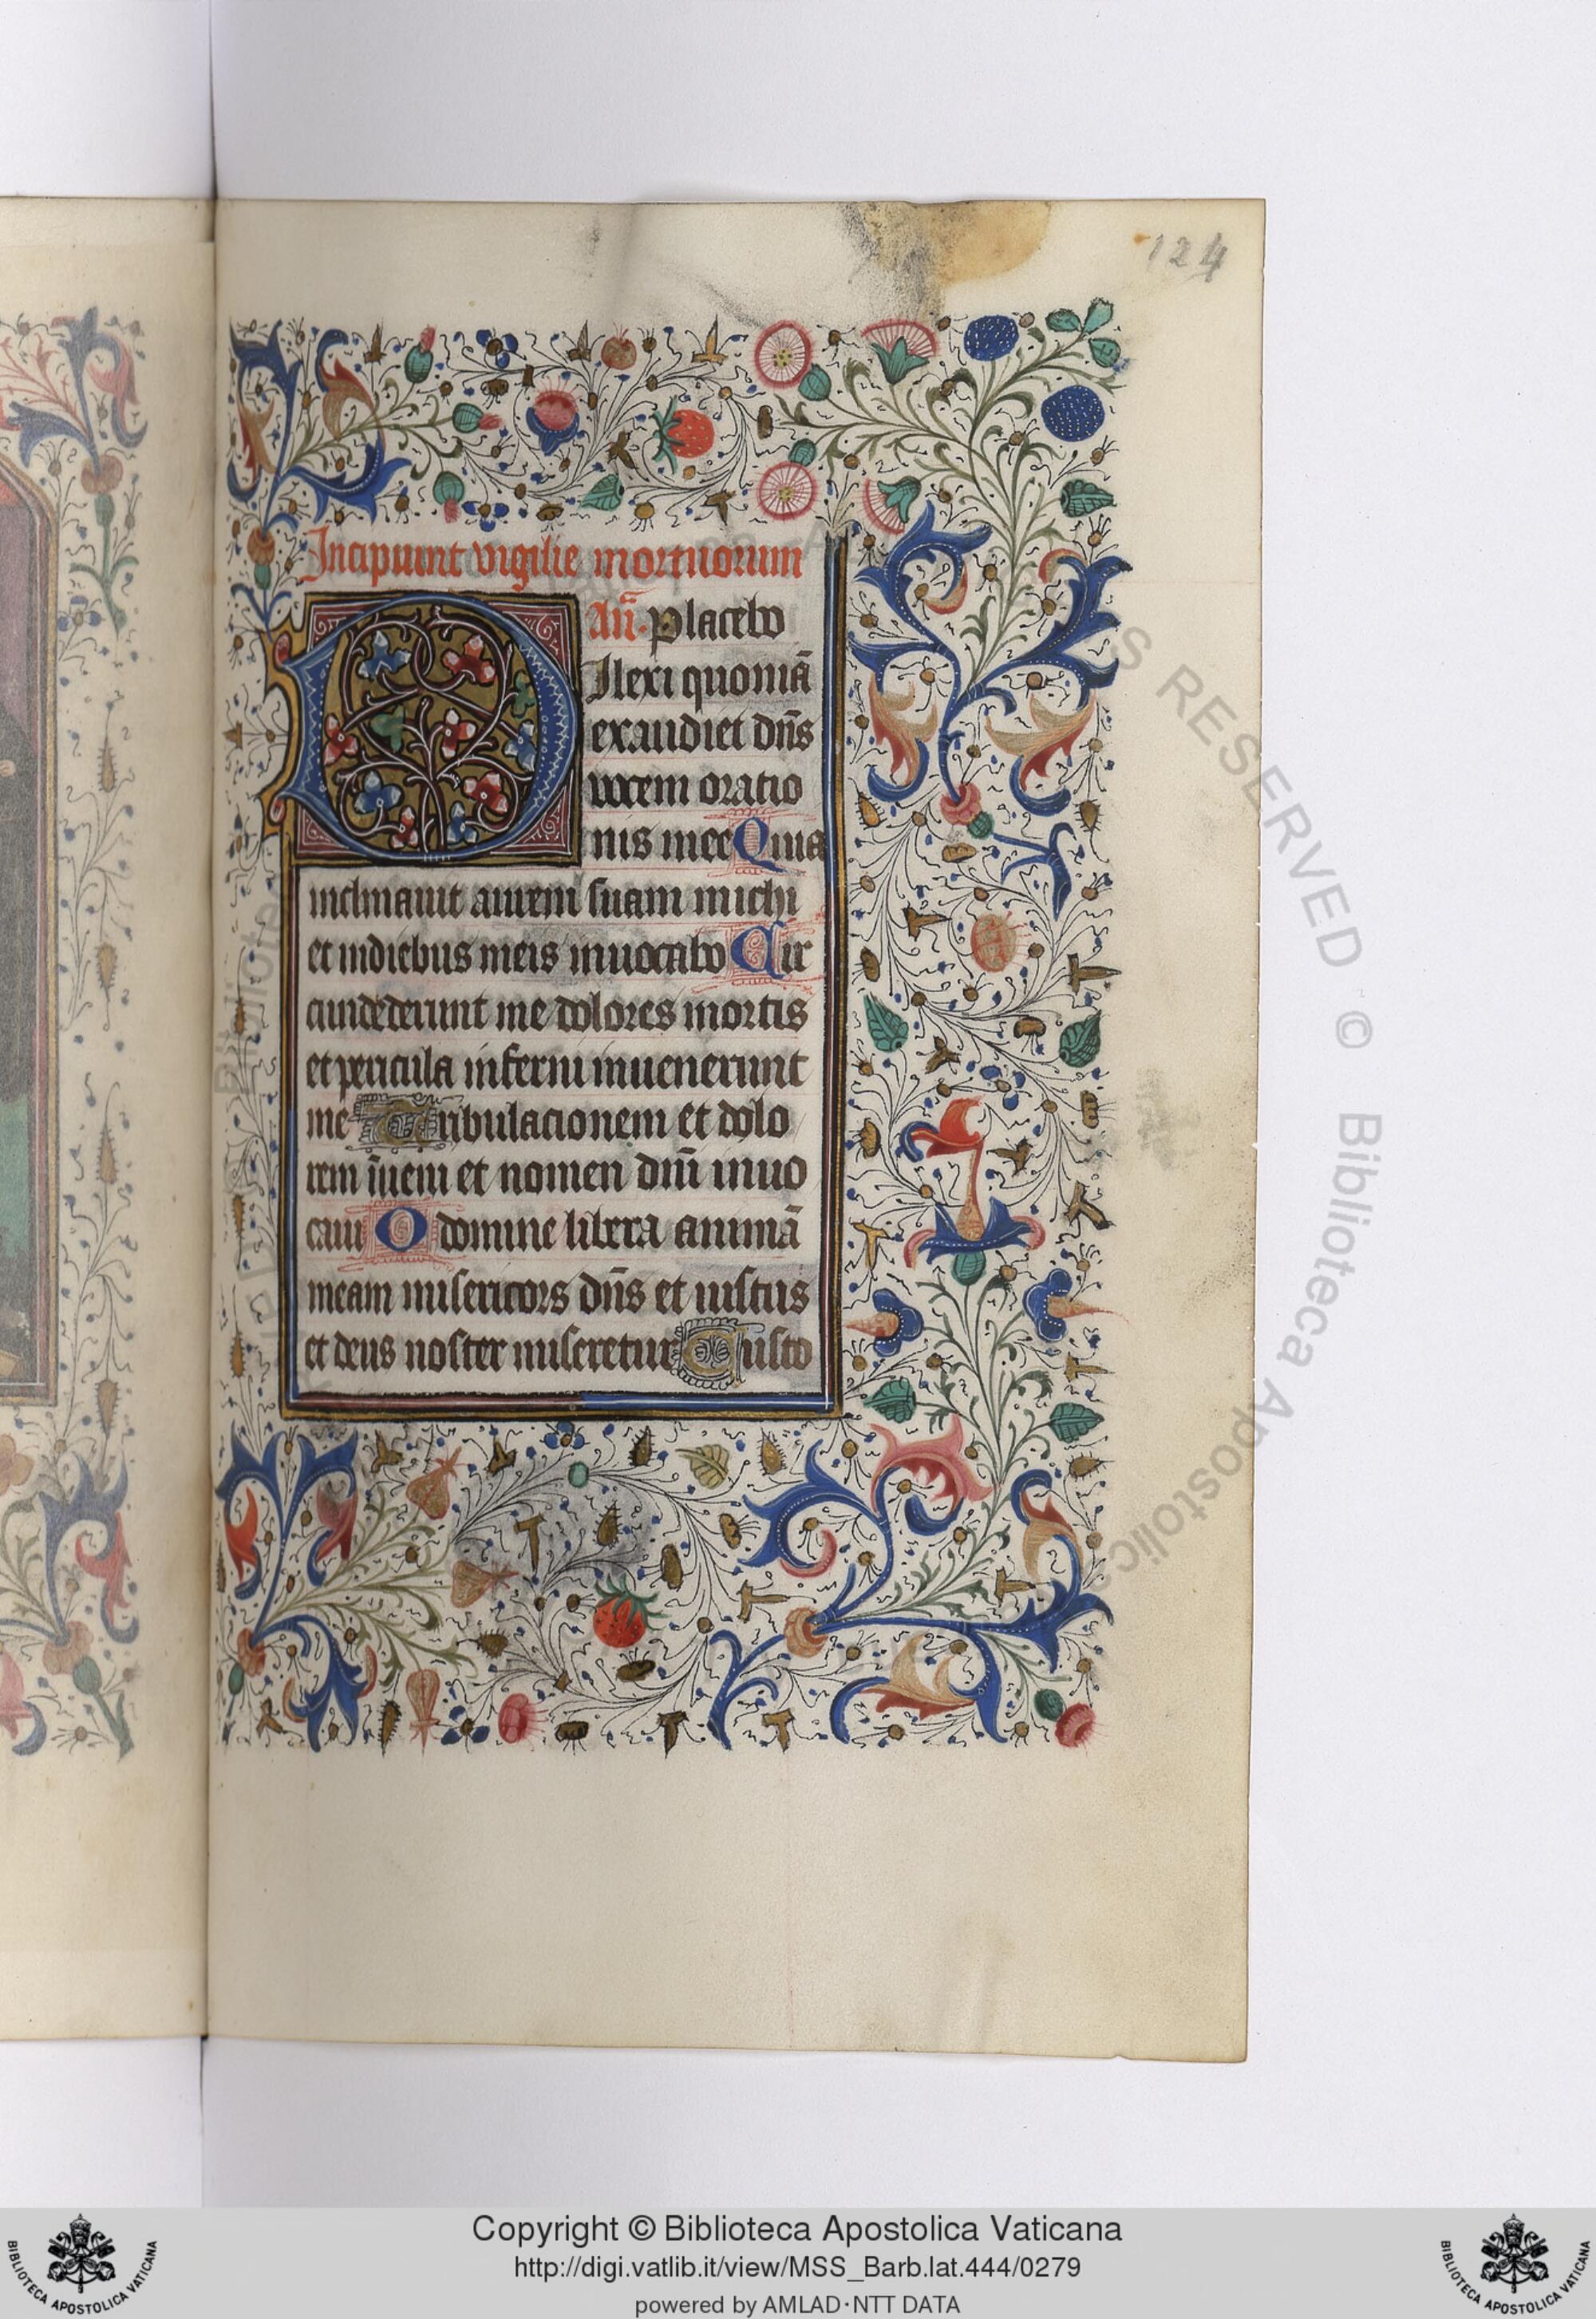 124
Incipiunt vigilie mortuorum
An̄. Placebo
DIlexi quoniā
exaudiet dn̄s
vocem oratio
nis mee Quia
inclinauit aurem suam michi
et indiebus meis inuocabo Cir
cumdederunt me dolores mortis
et pericula inferni inuenerunt
me Tribulacionem et dolo
rem īueni et nomen dn̄i inuo
caui O domine libera animā
meam misericors dn̄s et iustus
et deus noster miseretur Custo
S RESERVED © Biblioteca Apostolica
Copyright © Biblioteca Apostolica Vaticana
http://digi.vatlib.it/view/MSS_Barb.lat.444/0279
powered by AMLAD·NTT DATA
BIBLIOTECA APOSTOLICA VATICANA
BIBLIOTECA APOSTOLICA VATICANA